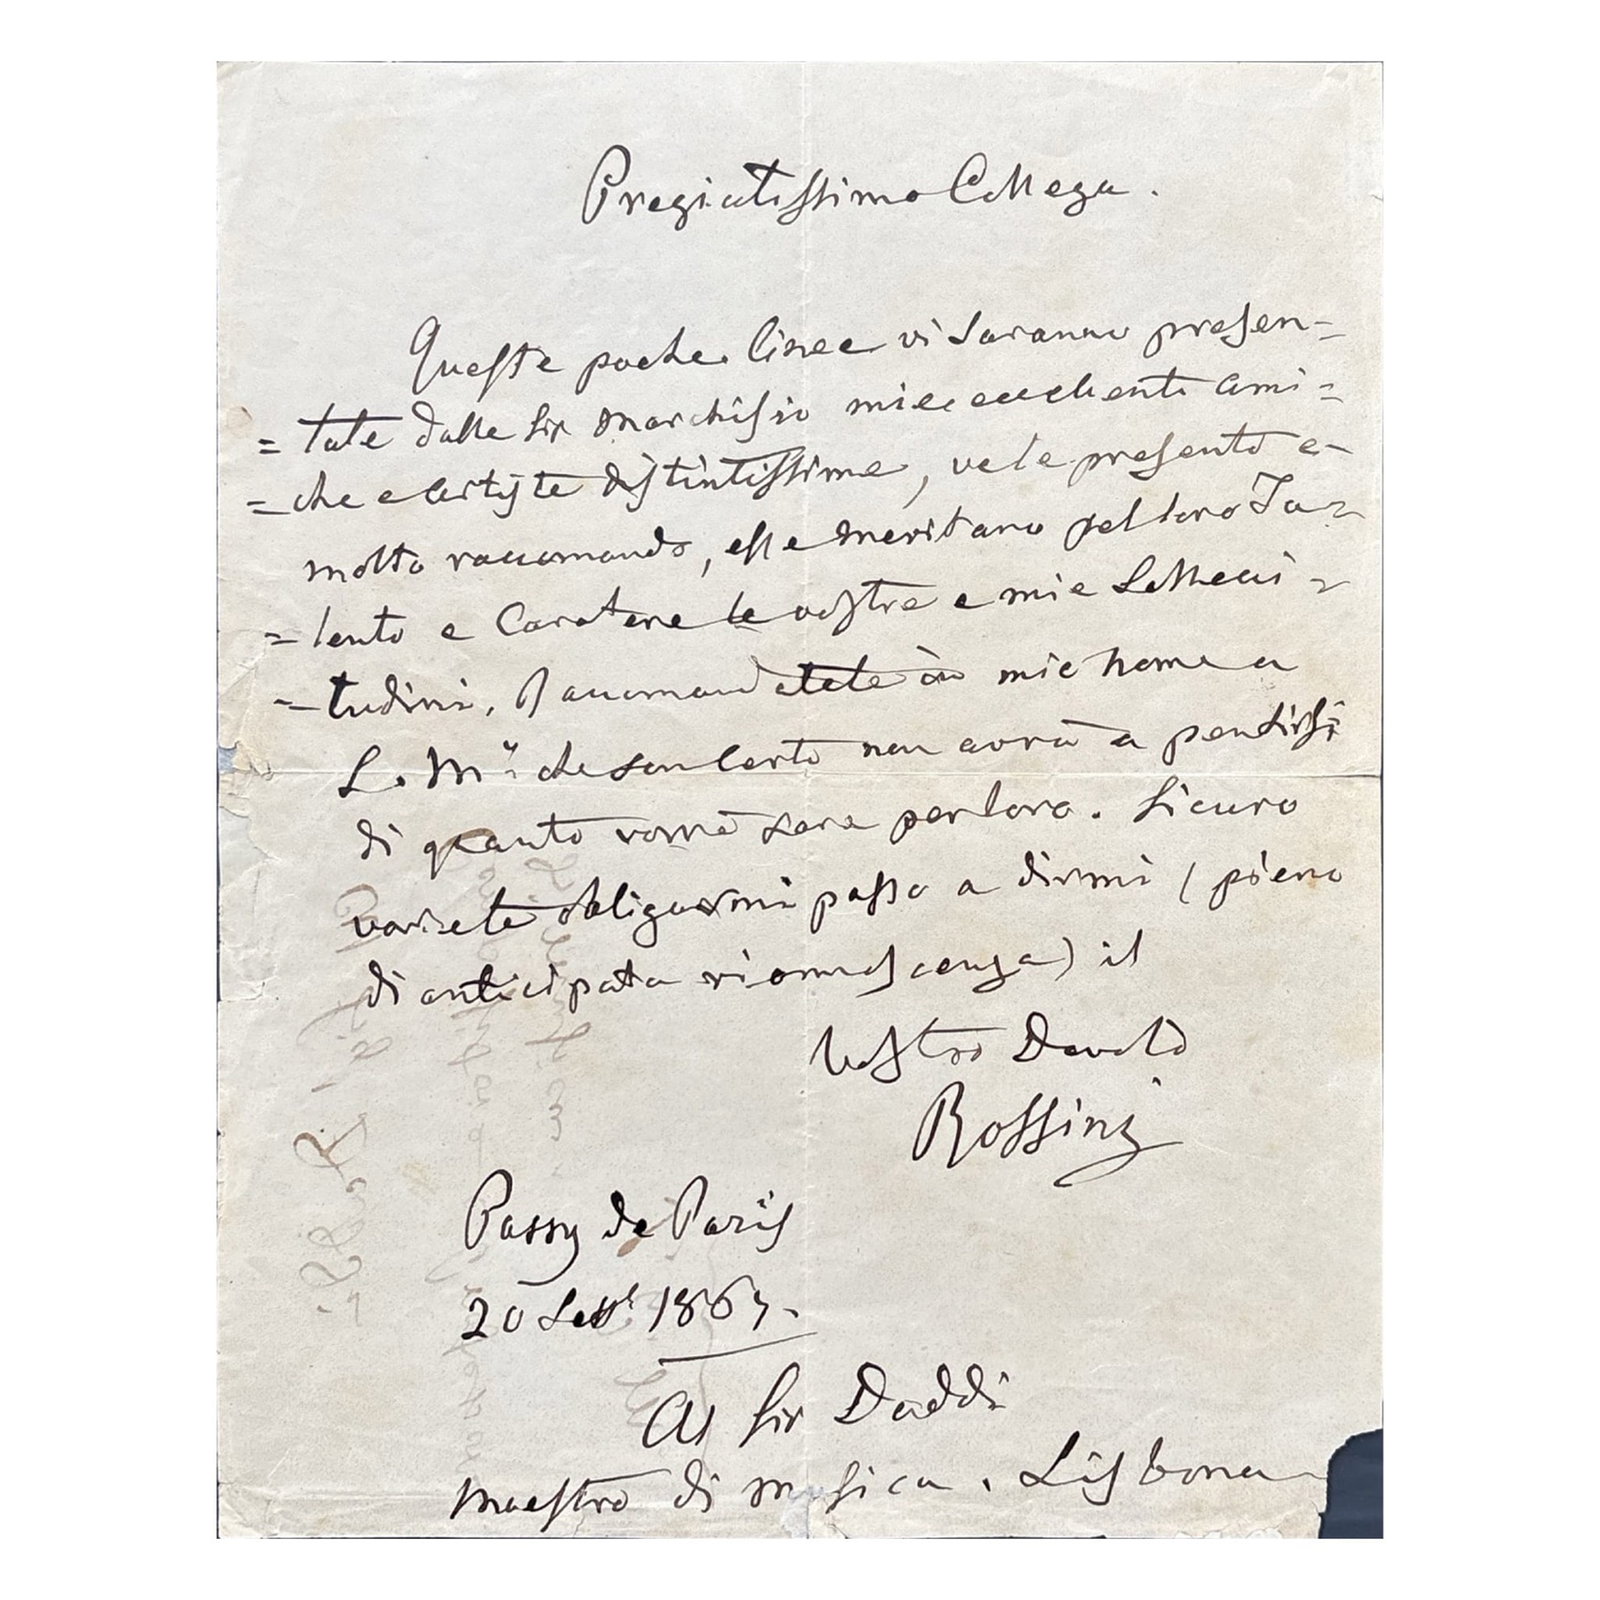 Pregiatissimo Collega.
Queste poche linee vi saranno presen=
=tate dalle Sir Marchisio mie eccellenti ami=
=che e Artiste distintissime, ve le presento e
molto raccomando, esse meritano pel loro Ta=
=lento e Caratere le vostre e mie Sollecci=
=tudini, Raccomandatele in mio nome a
S. M. che son Certo non avrà a pentirsi
di quanto vorrà fare per loro. Sicuro
vorrete obligarmi passo a dirmi (pieno
di anticipata riconoscenza) il
Vostro Devoto
Rossini
Passy de Paris
20 Sett. 1867.
Al Sir Daddi
Maestro di Musica. Lisbona